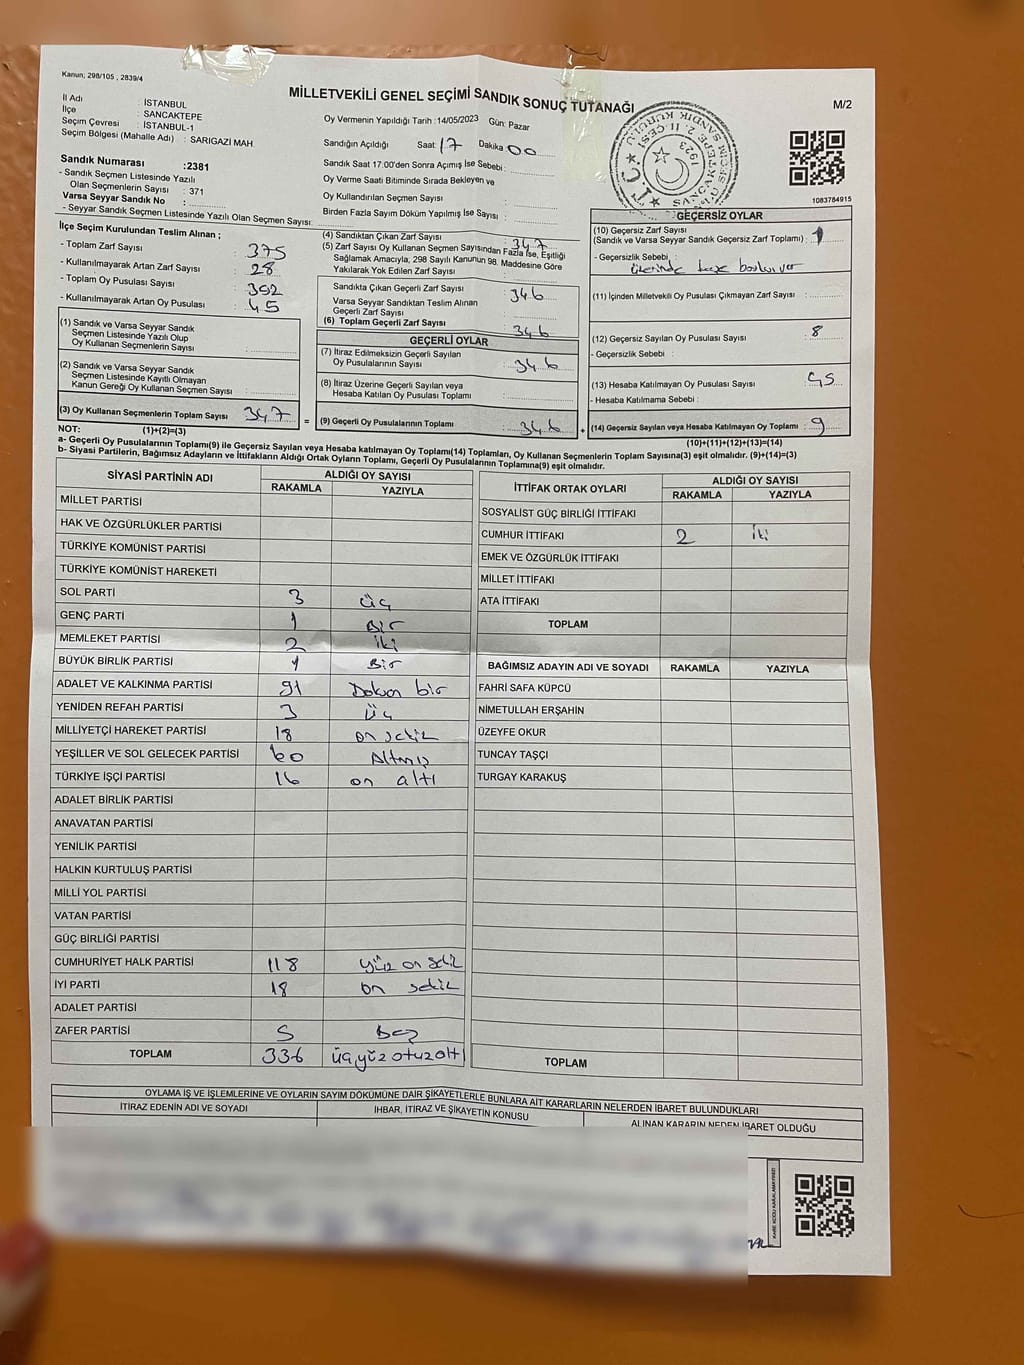 Kanun; 298/105 , 2839/4
MİLLETVEKİLİ GENEL SEÇİMİ SANDIK SONUÇ TUTANAĞI
M/2
İl Adı : İSTANBUL
İlçe : SANCAKTEPE
Seçim Çevresi : İSTANBUL-1
Seçim Bölgesi (Mahalle Adı) : SARIGAZİ MAH.
Oy Vermenin Yapıldığı Tarih :14/05/2023 Gün: Pazar
Sandığın Açıldığı Saat 17 Dakika 00
Sandık Saat 17:00'den Sonra Açımış İse Sebebi :
Oy Verme Saati Bitiminde Sırada Bekleyen ve
Oy Kullandırılan Seçmen Sayısı :
Birden Fazla Sayım Döküm Yapılmış İse Sayısı :
Sandık Numarası :2381
- Sandık Seçmen Listesinde Yazılı
Olan Seçmenlerin Sayısı : 371
Varsa Seyyar Sandık No :
- Seyyar Sandık Seçmen Listesinde Yazılı Olan Seçmen Sayısı:
1083784915
İlçe Seçim Kurulundan Teslim Alınan ;
- Toplam Zarf Sayısı : 375
- Kullanılmayarak Artan Zarf Sayısı : 28
- Toplam Oy Pusulası Sayısı : 392
- Kullanılmayarak Artan Oy Pusulası : 45
(1) Sandık ve Varsa Seyyar Sandık
Seçmen Listesinde Yazılı Olup
Oy Kullanan Seçmenlerin Sayısı :
(2) Sandık ve Varsa Seyyar Sandık
Seçmen Listesinde Kayıtlı Olmayan
Kanun Gereği Oy Kullanan Seçmen Sayısı :
(3) Oy Kullanan Seçmenlerin Toplam Sayısı : 347
(4) Sandıktan Çıkan Zarf Sayısı : 347
(5) Zarf Sayısı Oy Kullanan Seçmen Sayısından Fazla İse, Eşitliği
Sağlamak Amacıyla, 298 Sayılı Kanunun 98. Maddesine Göre
Yakılarak Yok Edilen Zarf Sayısı :
Sandıkta Çıkan Geçerli Zarf Sayısı : 346
Varsa Seyyar Sandıktan Teslim Alınan
Geçerli Zarf Sayısı :
(6) Toplam Geçerli Zarf Sayısı : 346
GEÇERLİ OYLAR
(7) İtiraz Edilmeksizin Geçerli Sayılan
Oy Pusulalarının Sayısı : 346
(8) İtiraz Üzerine Geçerli Sayılan veya
Hesaba Katılan Oy Pusulası Toplamı :
= (9) Geçerli Oy Pusulalarının Toplamı : 346
GEÇERSİZ OYLAR
(10) Geçersiz Zarf Sayısı
(Sandık ve Varsa Seyyar Sandık Geçersiz Zarf Toplamı) : 1
- Geçersizlik Sebebi :
(11) İçinden Milletvekili Oy Pusulası Çıkmayan Zarf Sayısı :
(12) Geçersiz Sayılan Oy Pusulası Sayısı : 8
- Geçersizlik Sebebi :
(13) Hesaba Katılmayan Oy Pusulası Sayısı :
- Hesaba Katılmama Sebebi :
+ (14) Geçersiz Sayılan veya Hesaba Katılmayan Oy Toplamı : 9
NOT: (1)+(2)=(3)
(10)+(11)+(12)+(13)=(14)
a- Geçerli Oy Pusulalarının Toplamı(9) ile Geçersiz Sayılan veya Hesaba katılmayan Oy Toplamı(14) Toplamları, Oy Kullanan Seçmenlerin Toplam Sayısına(3) eşit olmalıdır. (9)+(14)=(3)
b- Siyasi Partilerin, Bağımsız Adayların ve İttifakların Aldığı Ortak Oyların Toplamı, Geçerli Oy Pusulalarının Toplamına(9) eşit olmalıdır.
SİYASİ PARTİNİN ADI ALDIĞI OY SAYISI
RAKAMLA YAZIYLA
MİLLET PARTİSİ
HAK VE ÖZGÜRLÜKLER PARTİSİ
TÜRKİYE KOMÜNİST PARTİSİ
TÜRKİYE KOMÜNİST HAREKETİ
SOL PARTİ 3 üç
GENÇ PARTİ 1 Bir
MEMLEKET PARTİSİ 2 iki
BÜYÜK BİRLİK PARTİSİ 1 Bir
ADALET VE KALKINMA PARTİSİ 91 Doksan bir
YENİDEN REFAH PARTİSİ 3 üç
MİLLİYETÇİ HAREKET PARTİSİ 18 on sekiz
YEŞİLLER VE SOL GELECEK PARTİSİ 60 Altmış
TÜRKİYE İŞÇİ PARTİSİ 16 on altı
ADALET BİRLİK PARTİSİ
ANAVATAN PARTİSİ
YENİLİK PARTİSİ
HALKIN KURTULUŞ PARTİSİ
MİLLİ YOL PARTİSİ
VATAN PARTİSİ
GÜÇ BİRLİĞİ PARTİSİ
CUMHURİYET HALK PARTİSİ 118 yüz on sekiz
İYİ PARTİ 18 on sekiz
ADALET PARTİSİ
ZAFER PARTİSİ 5 Beş
TOPLAM 336 üçyüz otuzaltı
İTTİFAK ORTAK OYLARI ALDIĞI OY SAYISI
RAKAMLA YAZIYLA
SOSYALİST GÜÇ BİRLİĞİ İTTİFAKI
CUMHUR İTTİFAKI 2 iki
EMEK VE ÖZGÜRLÜK İTTİFAKI
MİLLET İTTİFAKI
ATA İTTİFAKI
TOPLAM
BAĞIMSIZ ADAYIN ADI VE SOYADI RAKAMLA YAZIYLA
FAHRİ SAFA KÜPCÜ
NİMETULLAH ERŞAHİN
ÜZEYFE OKUR
TUNCAY TAŞÇI
TURGAY KARAKUŞ
TOPLAM
OYLAMA İŞ VE İŞLEMLERİNE VE OYLARIN SAYIM DÖKÜMÜNE DAİR ŞİKAYETLERLE BUNLARA AİT KARARLARIN NELERDEN İBARET BULUNDUKLARI
İTİRAZ EDENİN ADI VE SOYADI İHBAR, İTİRAZ VE ŞİKAYETİN KONUSU ALINAN KARARIN NEDEN İBARET OLDUĞU